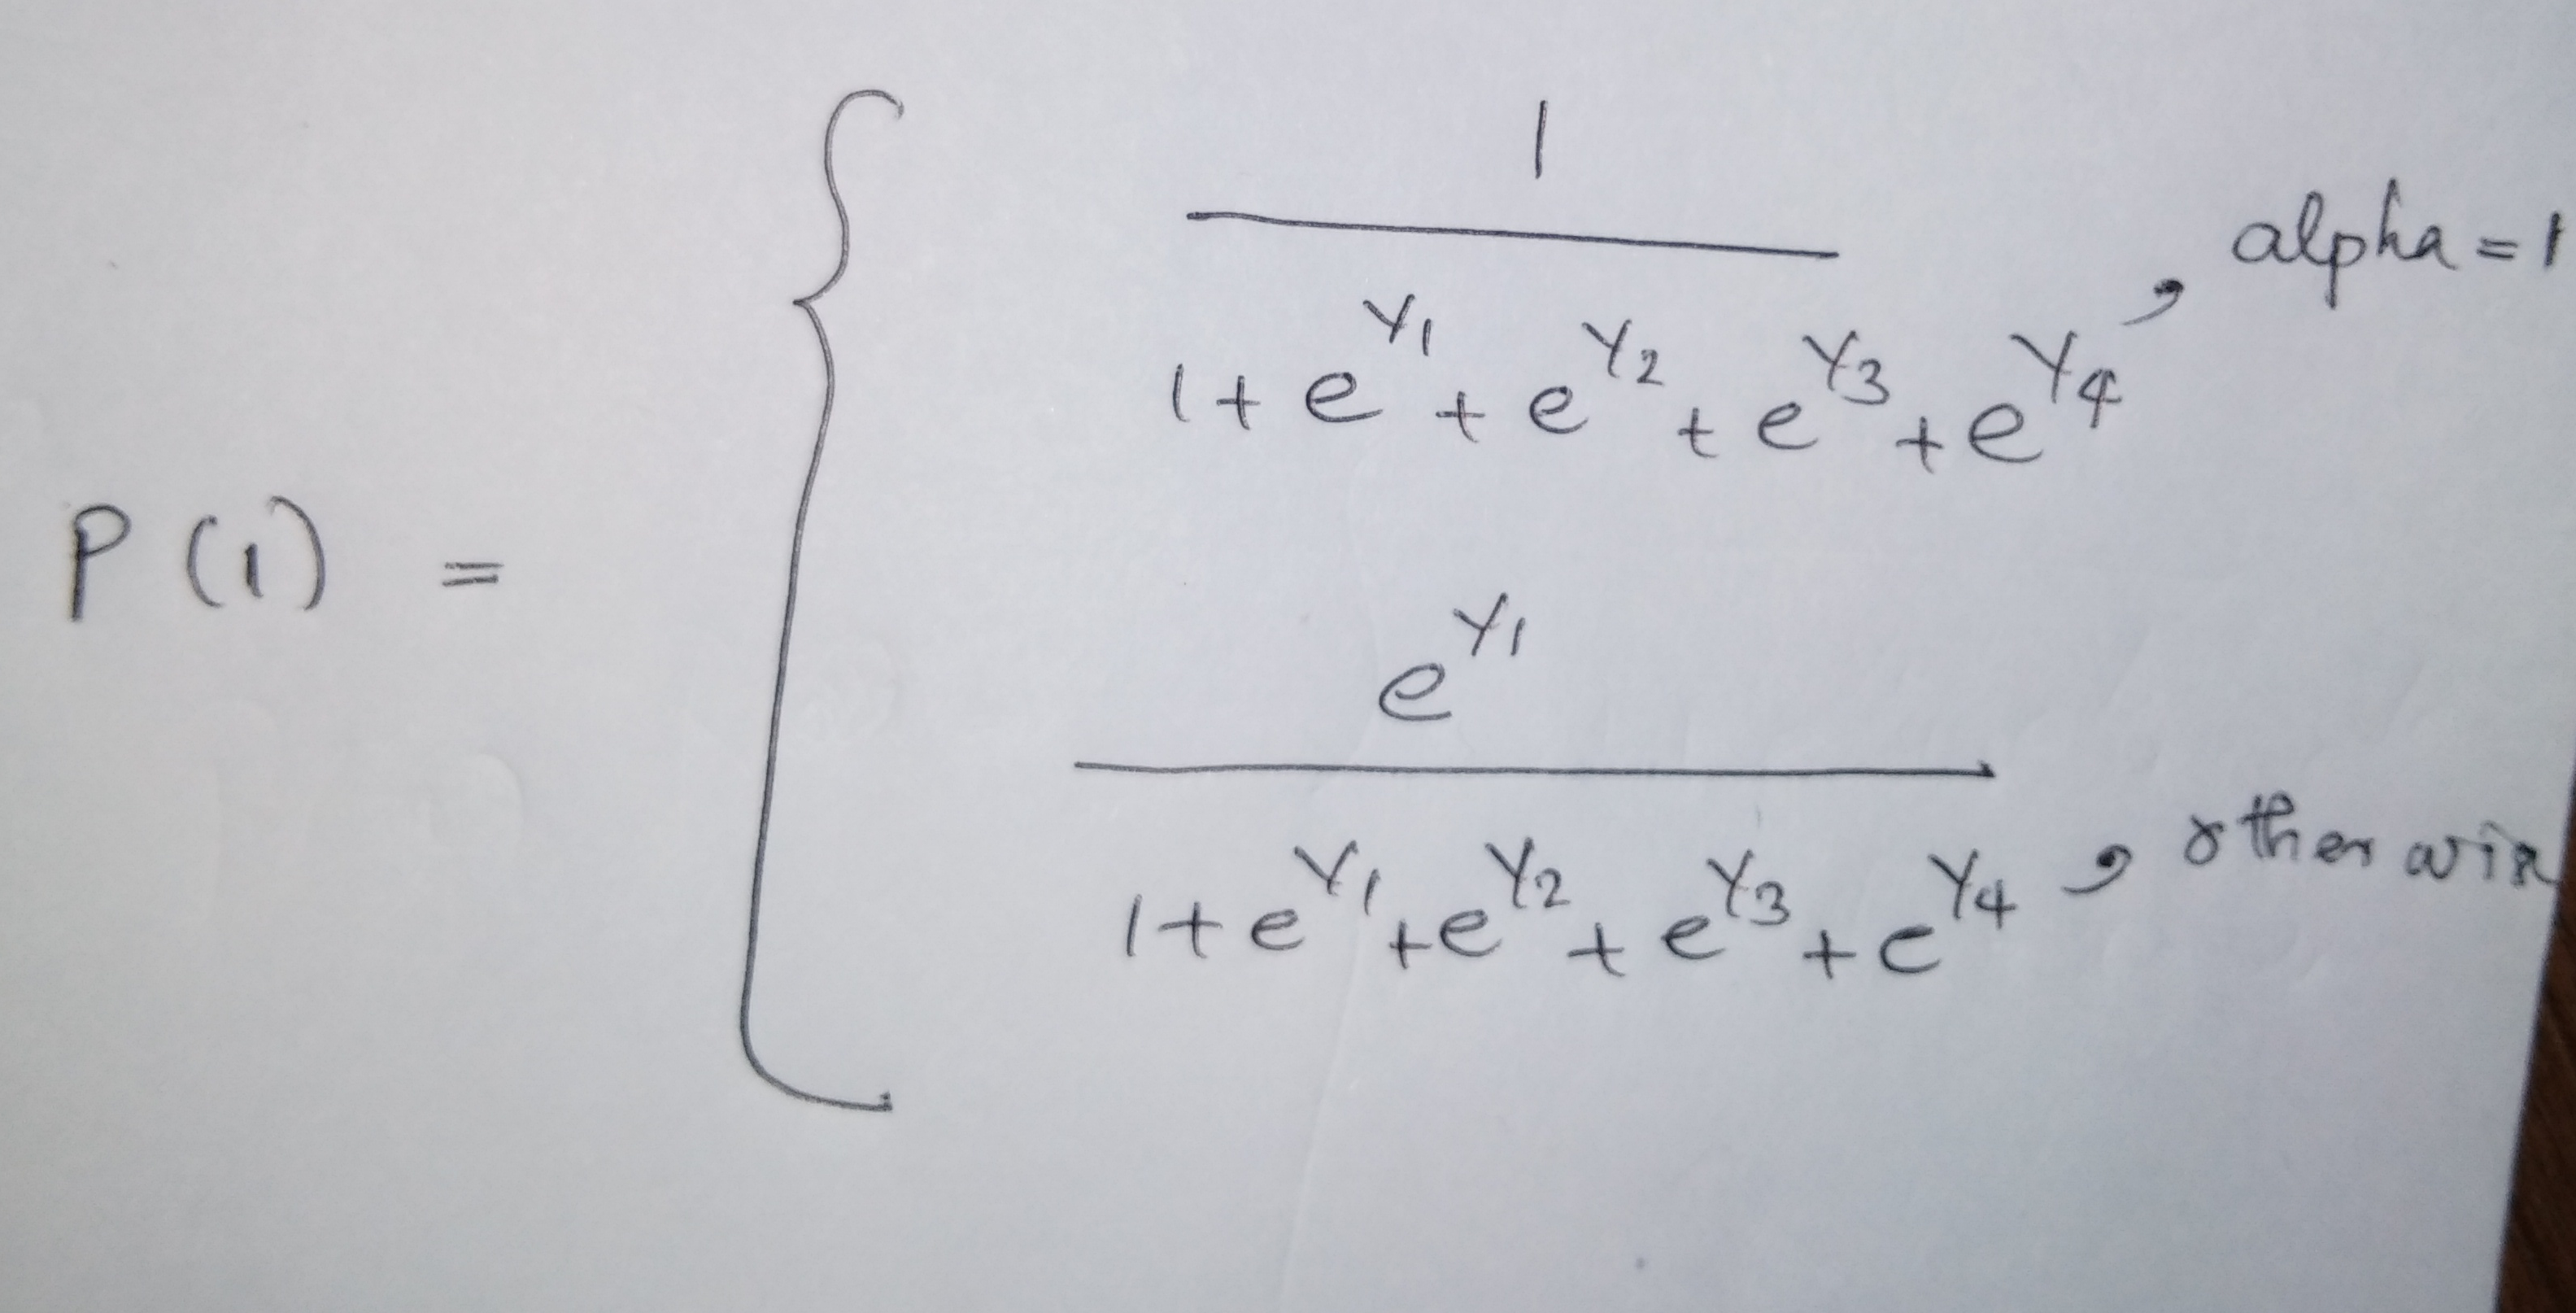 P(1) =
1
1+e^Y1+e^Y2+e^Y3+e^Y4, alpha=1
e^Y1
1+e^Y1+e^Y2+e^Y3+e^Y4, otherwise